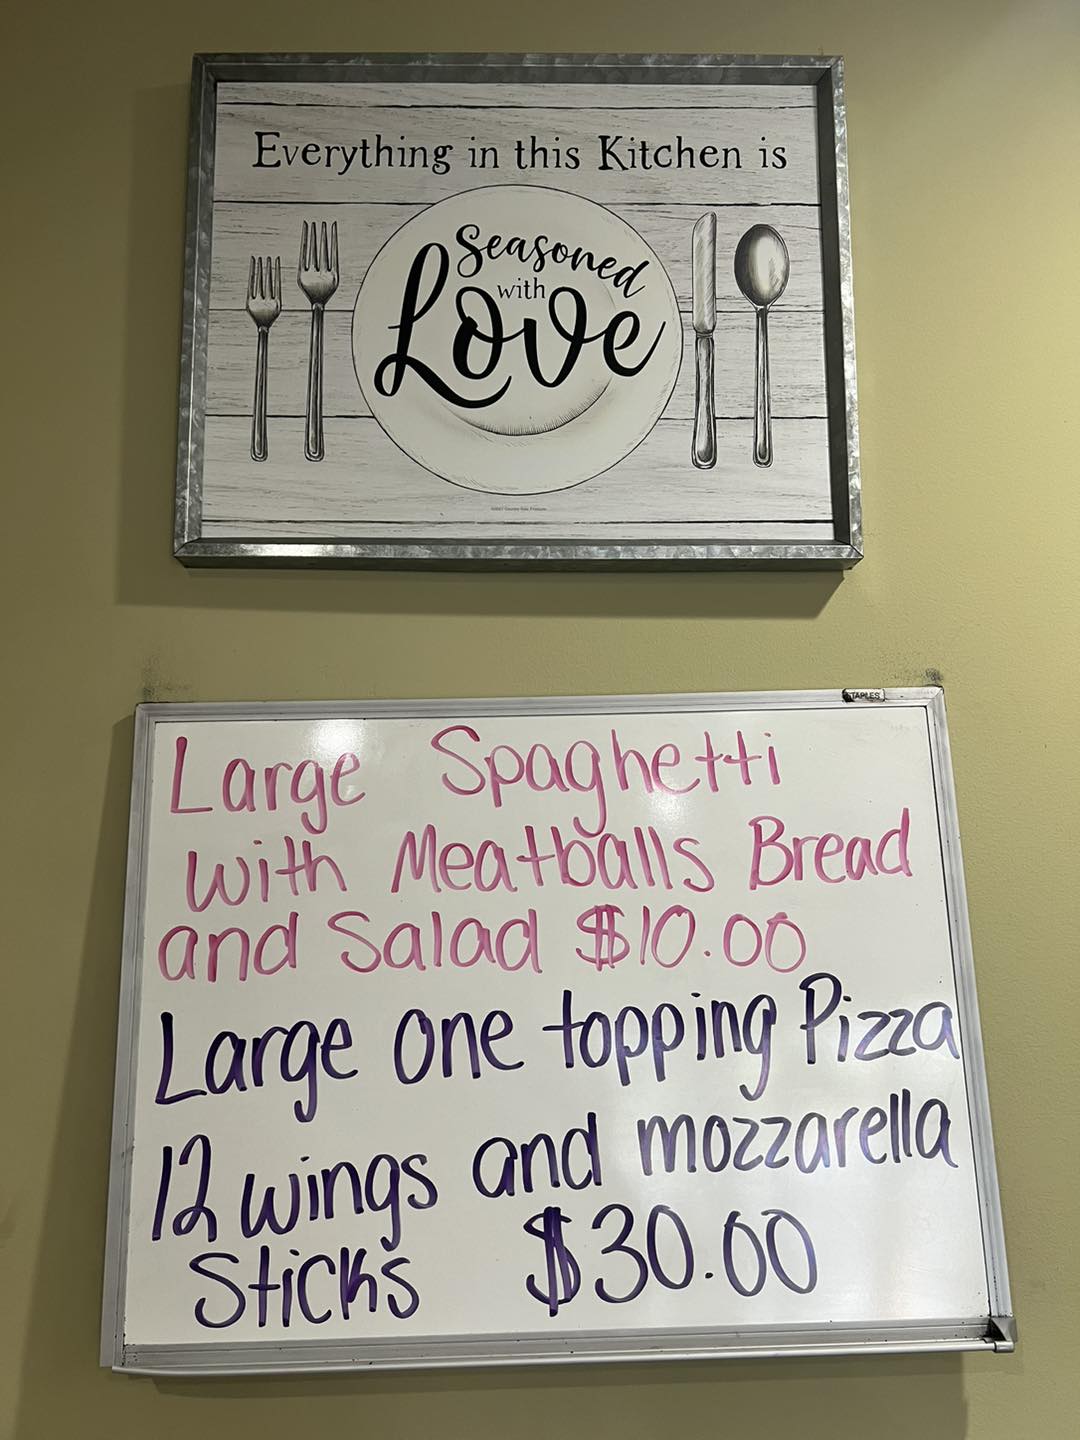 Everything in this Kitchen is
Seasoned
with
Love
STAPLES
Large Spaghetti
with Meatballs Bread
and Salad $10.00
Large one topping Pizza
12 wings and mozzarella
Sticks $30.00